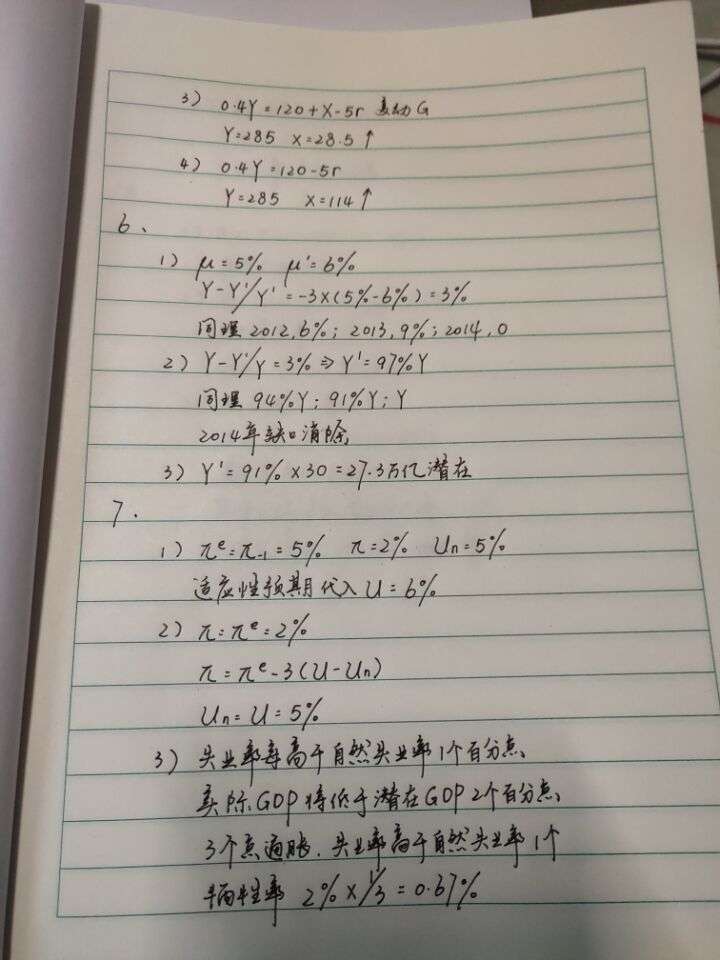 3) 0.4Y=120+X-5r 变动G
Y=285 X=28.5↑
4) 0.4Y=120-5r
Y=285 X=114↑
6、
1) μ=5% μ'=6%
Y-Y'/Y'=-3×(5%-6%)=3%
同理 2012,6%; 2013,9%; 2014,0
2) Y-Y'/Y=3%⇒Y'=97%Y
同理 94%Y; 91%Y; Y
2014年缺口消除
3) Y'=91%×30=27.3万亿潜在
7.
1) π^e=π_-1=5% π=2% Un=5%
适应性预期代入U=6%
2) π=π^e=2%
π=π^e-3(U-Un)
Un=U=5%
3) 失业率每高于自然失业率1个百分点、
实际GDP将低于潜在GDP2个百分点、
3个点通胀.失业率高于自然失业率1个
牺牲率 2%×1/3=0.67%